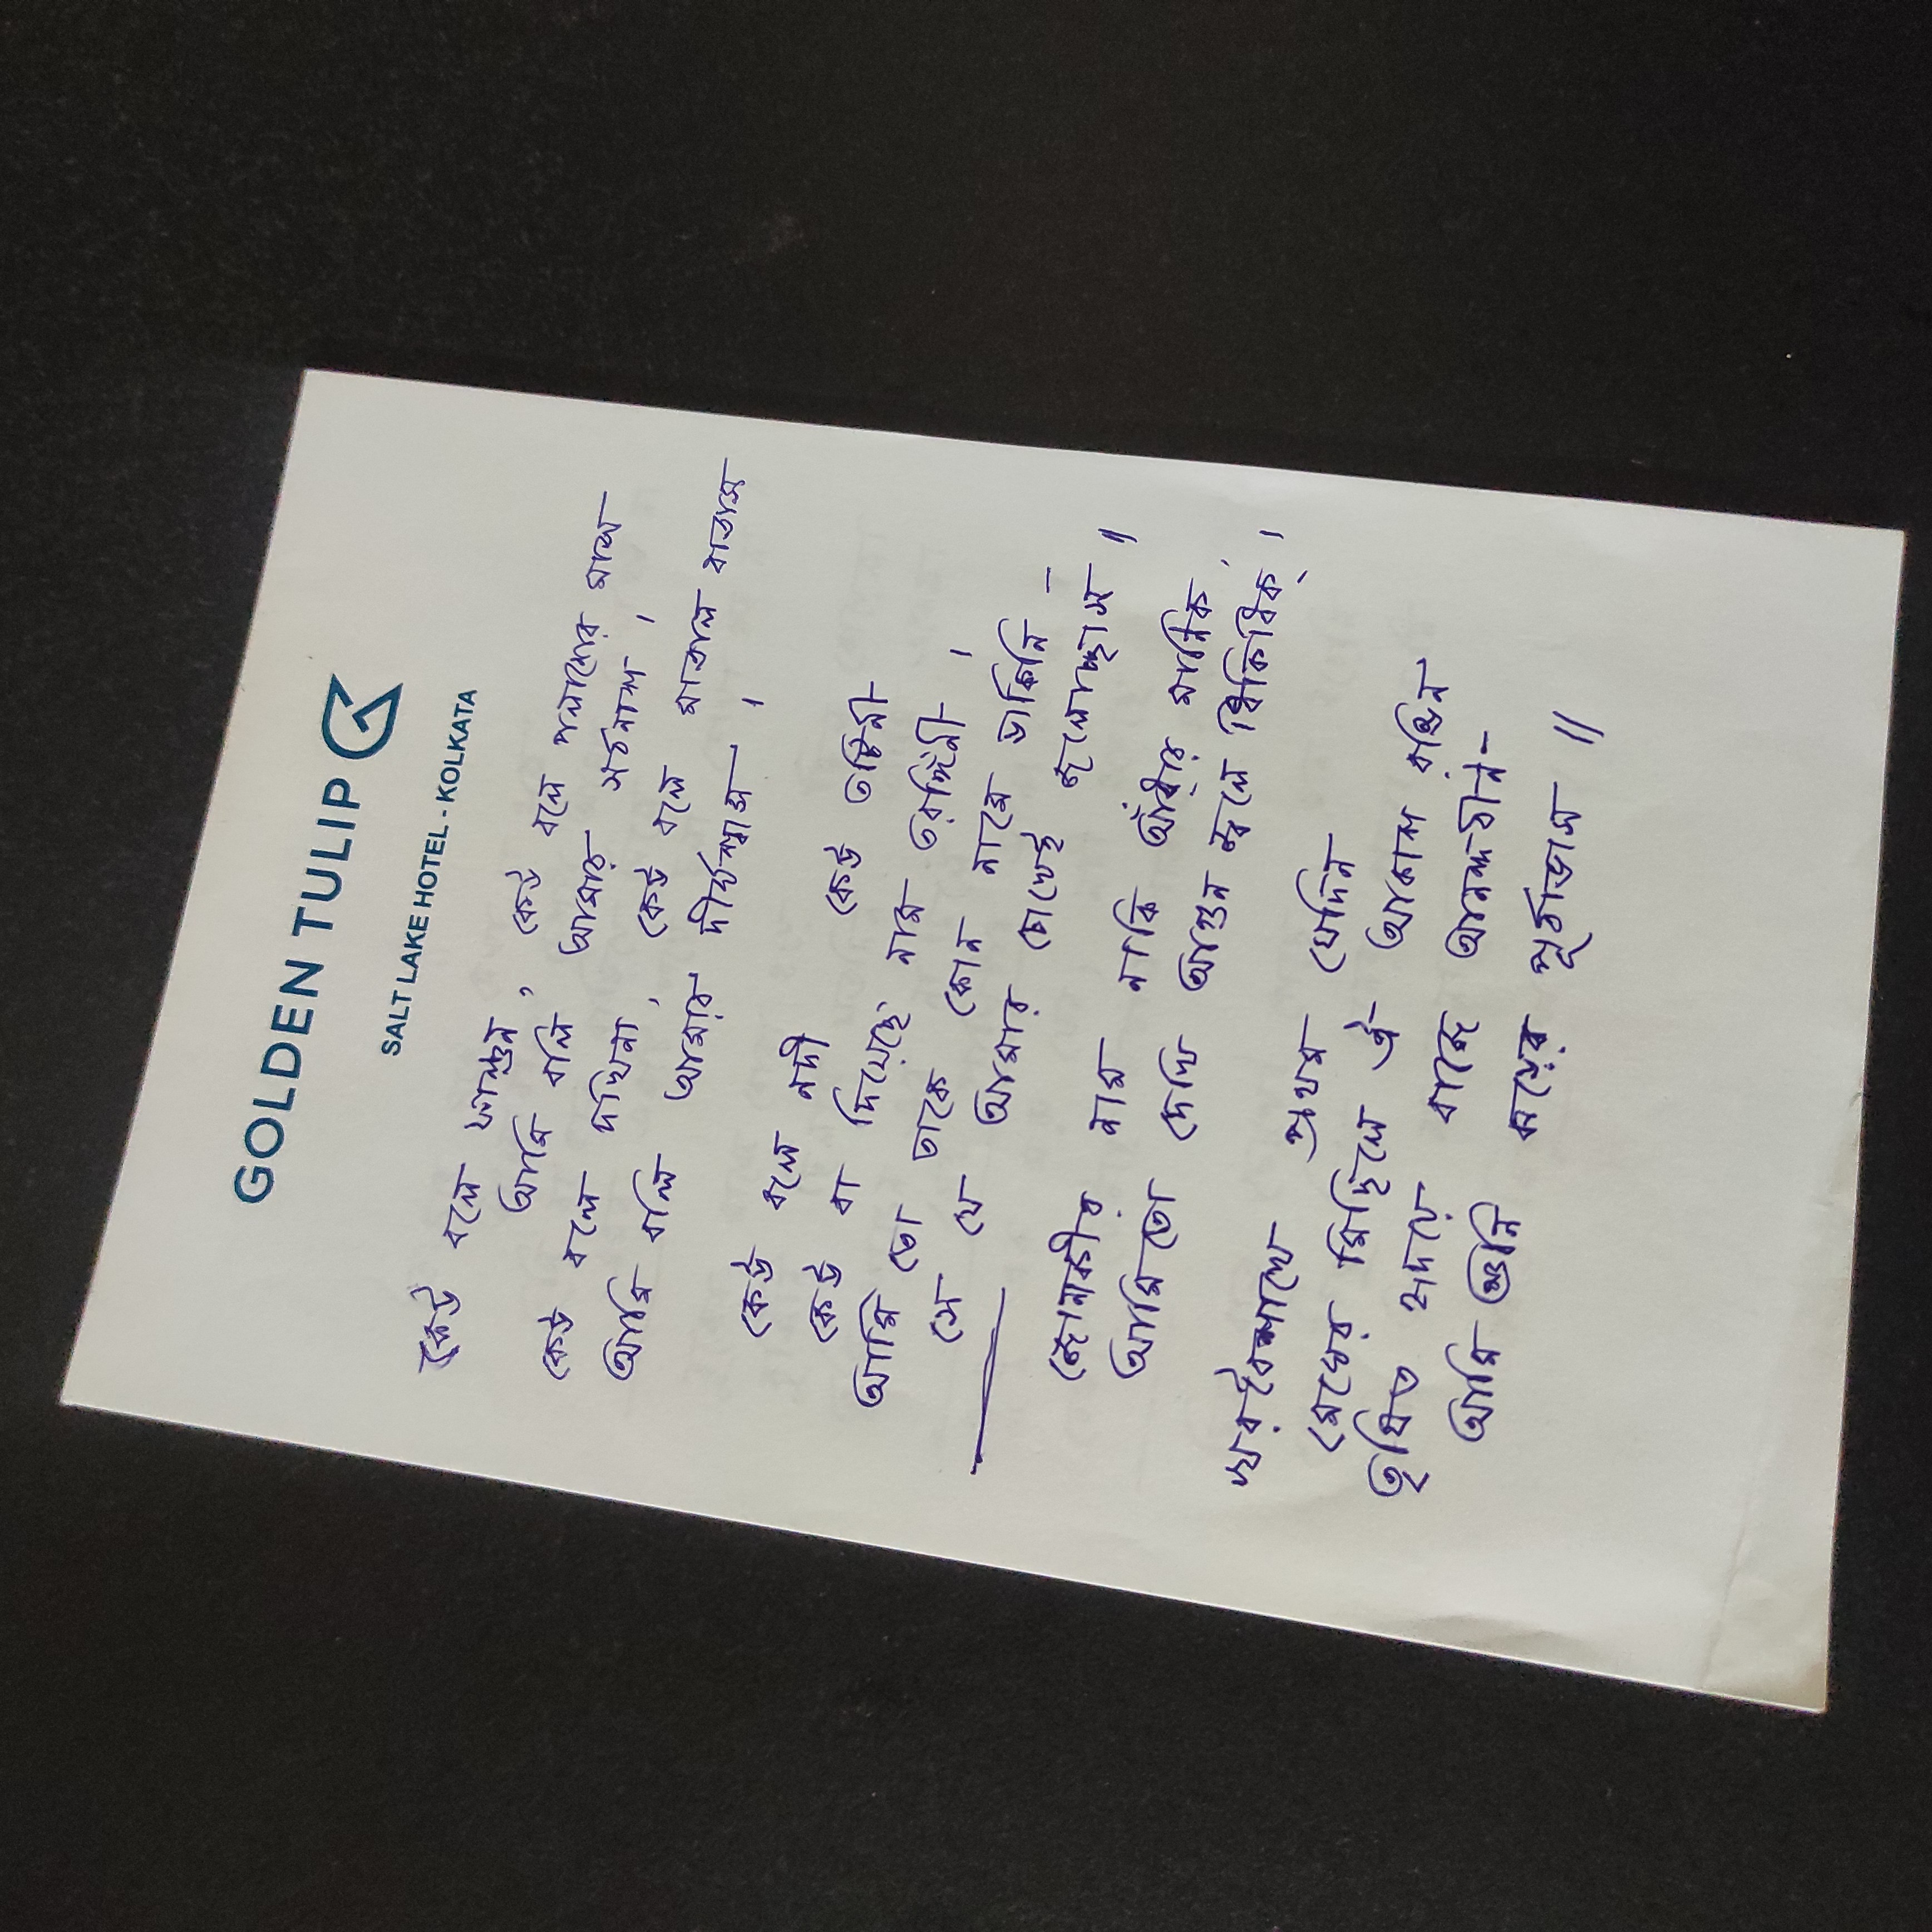 GOLDEN TULIP
SALT LAKE HOTEL - KOLKATA
কেউ বলে ফাল্গুন, কেউ বলে পলাশের মাস
আমি বলি আমার সর্বনাশ।
কেউ বলে দখিনা, কেউ বলে মাতাল বাতাস
আমি বলি আমার দীর্ঘশ্বাস।
কেউ বলে নদী কেউ তটিনী
কেউ বা দিয়েছে নাম তরঙ্গিনী।
আমি তো তাকে কোন নামে ডাকিনি –
সে যে আমার চোখেই জলোচ্ছাস॥
জোনাকীর নাম নাকি আঁধার মানিক,
আমিতো দেখি আগুন জ্বলে ধিকিধিক্।
খরবৈশাখে প্রথম যেদিন
মেঘের মিছিলে ঐ আকাশ রঙিন
তৃষিত হৃদয়ে বাজে আনন্দবীন-
আমি শুনি ঝড়ের পূর্বাভাস॥